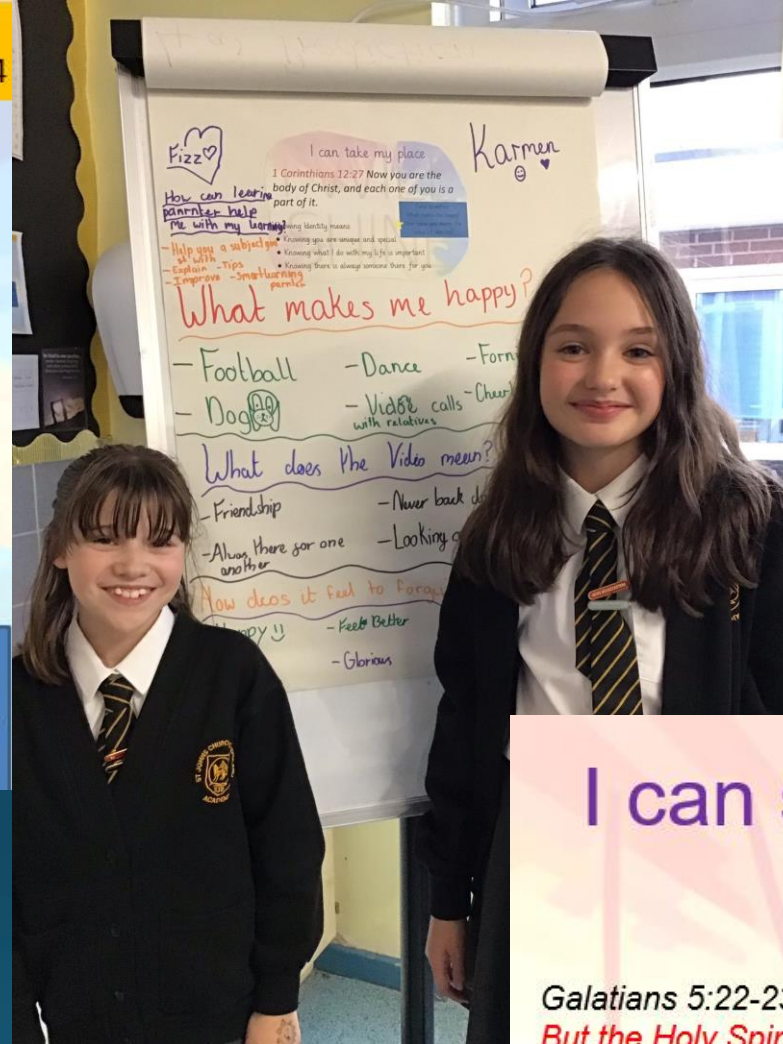 4
Fizz
Karmen
I can take my place
1 Corinthians 12:27 Now you are the
body of Christ, and each one of you is a
part of it.
Identity means
Knowing you are unique and special
Knowing what I do with my life is important
Knowing there is always someone there for you
How can learing
panrnter help
Me with my learning?
- Help you a subject you
with
- Explain - Tips
- Improve - Smart learning
What makes me happy?
- Football
- Dance
- Dog
- Video calls
with relatives
What does the Video mean?
- Friendship
- Never back
- Alway there for one
another
- Looking
How deos it feel to
- Feel Better
- Glorious
ST JOHNS CHURCH
ACADEMY
I can
Galatians 5:22-23
But the Holy